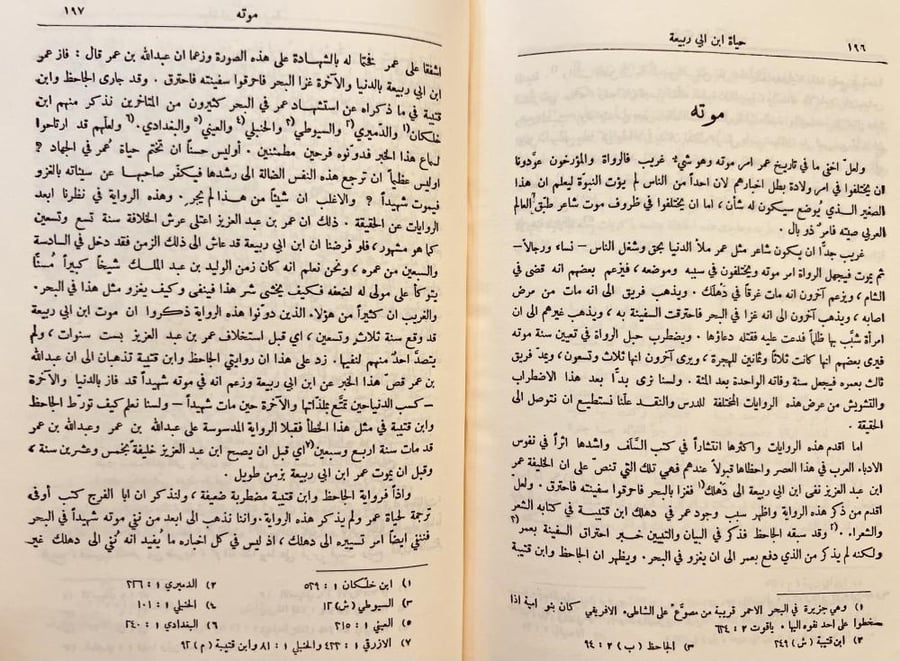 ١٩٦
حياة ابن ابي ربيعة
موته
ولعلّ اخفى ما في تاريخ عمر امر موته وهو شيء غريب فالرواة والمؤرخون عوّدونا
ان يختلفوا في امر ولادة بطل اخبارهم لان احداً من الناس لم يؤت النبوّة ليعلم ان هذا
الصغير الذي يُوضع سيكون له شأن ، اما ان يختلفوا في ظروف موت شاعر طبّق العالم
العربي صيته فامرٌ ذو بال .
غريب جدًّا ان يكون شاعر مثل عمر ملأ الدنيا بحق وشغل الناس – نساء ورجالاً –
ثم يموت فيجهل الرواة امر موته ويختلفون في سببه وموضعه ، فيزعم بعضهم انه قضى في
الشام ، ويزعم آخرون انه مات غرقاً في دَهْلَك . ويذهب فريق الى انه مات من مرض
اصابه ، ويذهب آخرون الى انه غزا في البحر فاحترقت السفينة به ، ويذهب غيرهم الى ان
امرأة شبَّب بها ظلماً فدعت عليه فقتله دعاؤها . ويضطرب حبل الرواة في تعيين سنة موته
فيرى بعضهم انها كانت ثلاثاً وثمانين للهجرة ، ويرى آخرون انها ثلاث وتسعون ، ويمدّ فريق
ثالث بعمره فيجعل سنة وفاته الواحدة بعد المئة . ولسنا نرى بدًّا بعد هذا الاضطراب
والتشويش من عرض هذه الروايات المختلفة للدرس والنقد علّنا نستطيع ان نتوصل الى
الحقيقة .
اما اقدم هذه الروايات واكثرها انتشاراً في كتب السَّلف واشدها اثراً في نفوس
الادباء العرب في هذا العصر واحظاها قبولاً عندهم فهي تلك التي تنصّ على ان الخليفة عمر
ابن عبد العزيز نفى ابن ابي ربيعة الى دَهْلك(١ فغزا بالبحر فاحرقوا سفينته فاحترق . ولعل
اقدم من ذكر هذه الرواية واظهر سبب وجود عمر في دهلك ابن قتيبة في كتابه الشعر
والشعراء .(٢ وقد سبقه الجاحظ فذكر في البيان والتبيين خبر احتراق السفينة بعمر(٣
ولكنه لم يذكر من الذي دفع بعمر الى ان يغزو في البحر . ويظهر ان الجاحظ وابن قتيبة
١) وهي جزيرة في البحر الاحمر قريبة من مصوَّع على الشاطىء الافريقي كان بنو امية اذا
سخطوا على احد نفوه اليها . ياقوت ٢ : ٦٣٤
٢) ابن قتيبة (ش) ٣٤٩ ٣) الجاحظ (ب) ٢ : ٦٤
موته
١٩٧
اشفقا على عمر فختما له بالشهادة على هذه الصورة وزعما ان عبدالله بن عمر قال : فاز عمر
ابن ابي ربيعة بالدنيا والآخرة غزا البحر فاحرقوا سفينته فاحترق . وقد جارى الجاحظ وابن
قتيبة في ما ذكراه عن استشهاد عمر في البحر كثيرون من المتاخرين نذكر منهم ابن
خلكان(١ والدّميري(٢ والسيوطي(٣ والحنبلي(٤ والعيني(٥ والبغدادي.(٦ ولعلّهم قد ارتاحوا
لسماع هذا الخبر فدوّنوه فرحين مطمئنين . أوليس حسناً ان تختم حياة عُمر في الجهاد ؟
اوليس عظيماً ان ترجع هذه النفس الضالة الى رشدها فيكفّر صاحبها عن سيئاته بالغزو
فيموت شهيداً ؟ والاغلب ان شيئاً من هذا لم يجرِ . وهذه الرواية في نظرنا ابعد
الروايات عن الحقيقة . ذلك ان عمر بن عبد العزيز اعتلى عرش الخلافة سنة تسع وتسعين
كما هو مشهور ، فلو فرضنا ان ابن ابي ربيعة قد عاش الى ذلك الزمن فقد دخل في السادسة
والسبعين من عمره ، ونحن نعلم انه كان زمن الوليد بن عبد الملك شيخاً كبيراً مُسنًّا
يتوكأ على مولى له لضعفه فكيف يخشى شر هذا فينفى وكيف يغزو مثل هذا في البحر.
والغريب ان كثيراً من هؤلاء الذين دونوا هذه الرواية ذكروا ان موت ابن ابي ربيعة
قد وقع سنة ثلاث وتسعين ، اي قبل استخلاف عمر بن عبد العزيز بست سنوات ، ولم
يتصدَّ احدٌ منهم لنفيها . زد على هذا ان روايتي الجاحظ وابن قتيبة تذهبان الى ان عبدالله
بن عمر قصّ هذا الخبر عن ابن ابي ربيعة وزعم انه في موته شهيداً قد فاز بالدنيا والآخرة
– كسب الدنيا حين تمتَّع بملذاتها والآخرة حين مات شهيداً – ولسنا نعلم كيف تورّط الجاحظ
وابن قتيبة في مثل هذا الخطأ فقبلا الرواية المدسوسة على عبدالله بن عمر وعبدالله بن عمر
قد مات سنة اربع وسبعين(٧ اي قبل ان يصبح ابن عبد العزيز خليفة بخمس وعشرين سنة ،
وقبل ان يموت عمر ابن ابي ربيعة بزمن طويل .
واذاً فرواية الجاحظ وابن قتيبة مضطربة ضعيفة ، ولنذكر ان ابا الفرج كتب أوفى
ترجمة لحياة عمر ولم يذكر هذه الرواية. واننا نذهب الى ابعد من نفي موته شهيداً في البحر
فننفي ايضاً امر تسييره الى دهلك ، اذ ليس في كل اخباره ما يفيد انه نُفي الى دهلك غير
١) ابن خلكان ١ : ٥٣٩ ٢) الدميري ١ : ٣٣٦
٣) السيوطي (ش) ١٢ ٤) الحنبلي ١ : ١٠١
٥) العيني ١ : ٣١٥ ٦) البغدادي ١ : ٢٤٠
٧) الازرقي ١ : ٤٢٣ والحنبلي ١ : ٨١ وابن قتيبة (م) ٩٢